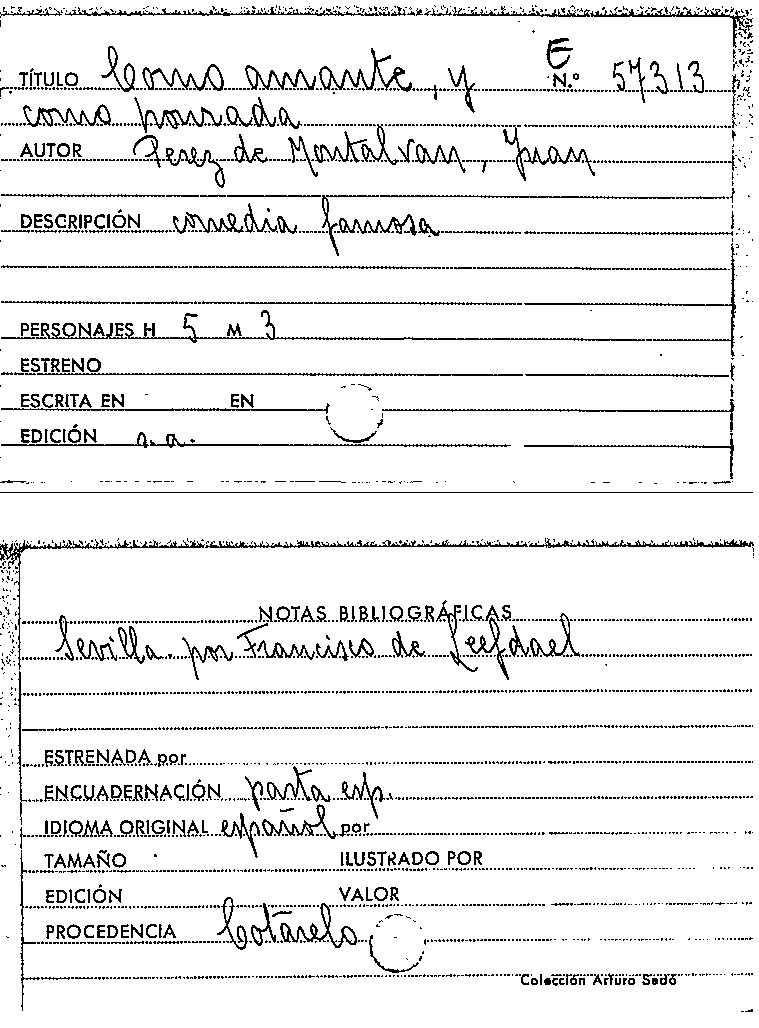 E
TÍTULO Como amante, y N.º 57313
como honrada
AUTOR Perez de Montalvan, Juan
DESCRIPCIÓN comedia famosa
PERSONAJES H 5 M 3
ESTRENO
ESCRITA EN EN
EDICIÓN s.a.
NOTAS BIBLIOGRÁFICAS
Sevilla. por Francisco de Leefdael
ESTRENADA por
ENCUADERNACIÓN pasta esp.
IDIOMA ORIGINAL español por
TAMAÑO ILUSTRADO POR
EDICIÓN VALOR
PROCEDENCIA Cotarelo
Colección Arturo Sedó